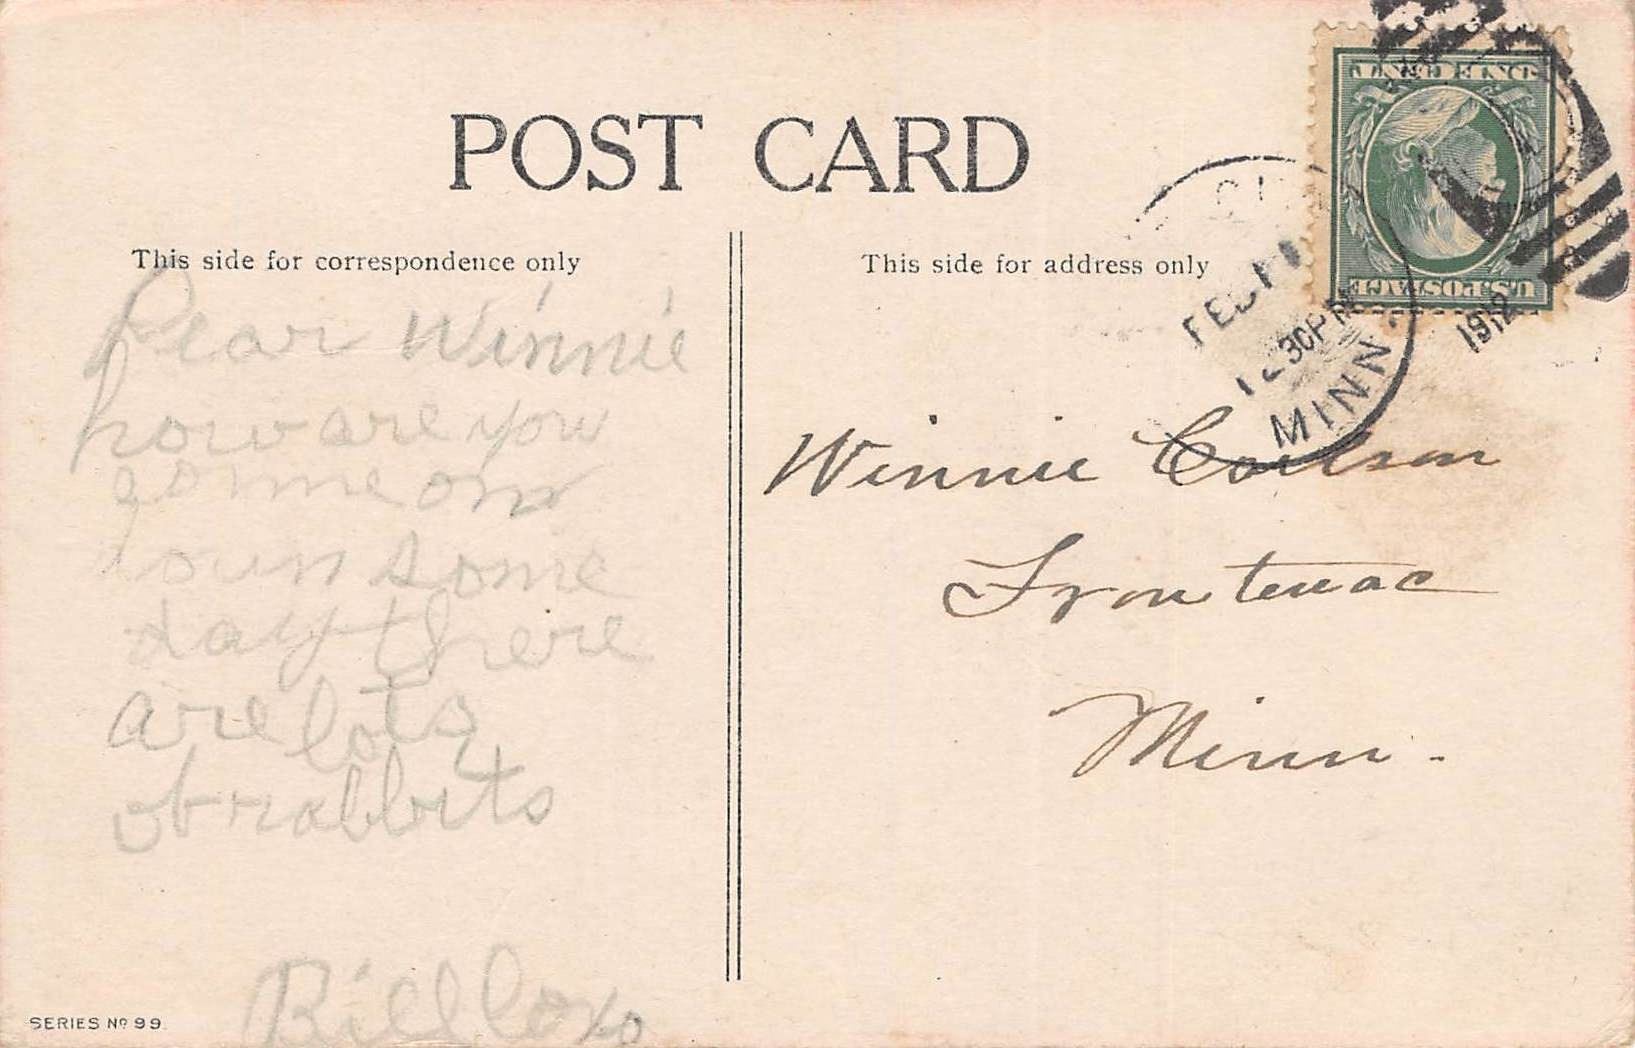 POST CARD
This side for correspondence only
This side for address only
ONE CENT
U.S. POSTAGE
FEB
30 PM
1912
MINN.
Dear Winnie
how are you
come
some
day there
are lots
of rabbits
Bill
Winnie Carlson
Frontenac
Minn.
SERIES Nº 99